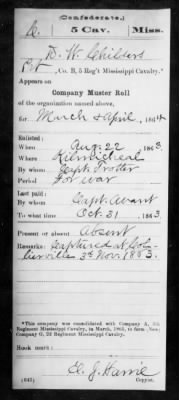 (Confederate.)
C. 5 Cav. Miss.
D. W. Childers
Pvt, Co. B, 5 Reg't Mississippi Cavalry.*
Appears on
Company Muster Roll
of the organization named above,
for March & April, 1864
Enlisted:
When Aug. 22 1863
Where Kilmicheal
By whom Capt. Trotter
Period For war
Last paid:
By whom Capt. Avant
To what time Oct. 31 1863.
Present or absent Absent
Remarks: Captured at Col-
lierville 3rd Nov. 1863.
*This company was consolidated with Company A, 5th
Regiment Mississippi Cavalry, in March, 1865, to form New
Company G, 2d Regiment Mississippi Cavalry.
Book mark:
(642)
Copyist.